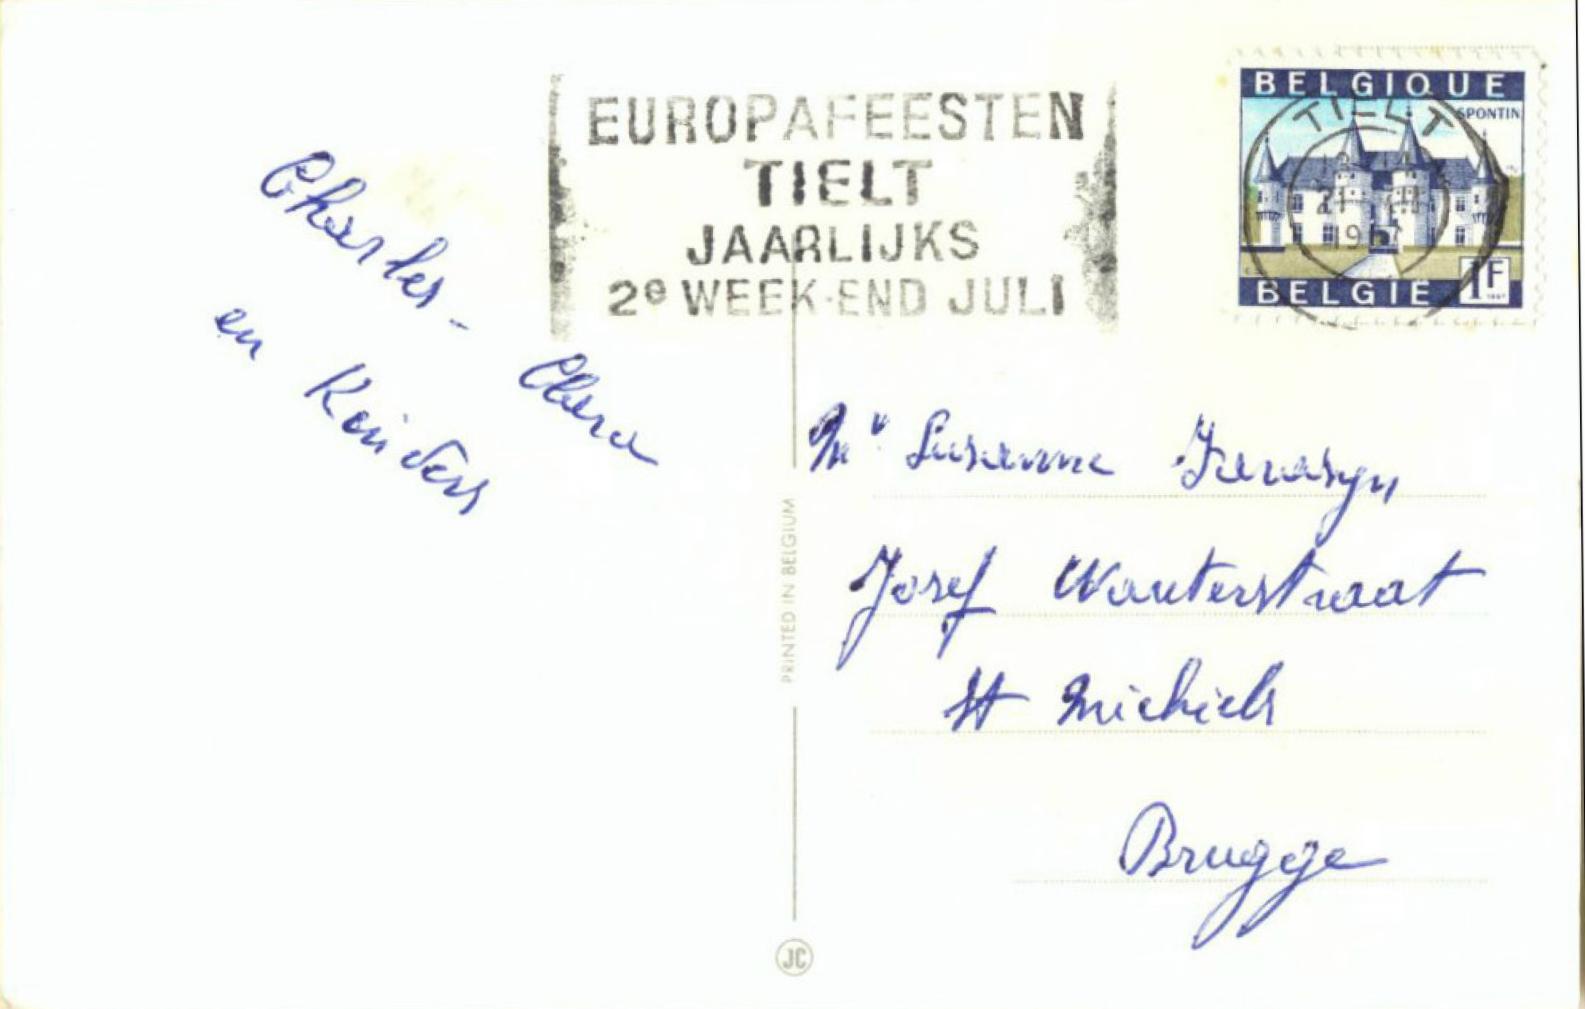 EUROPAFEESTEN
TIELT
JAARLIJKS
2e WEEK-END JULI
BELGIQUE
SPONTIN
TIELT
1967
BELGIE 1F
Charles - Clara
en Kinders
Mr Susanne
Josef Wauterstraat
St Michiels
Brugge
PRINTED IN BELGIUM
JC